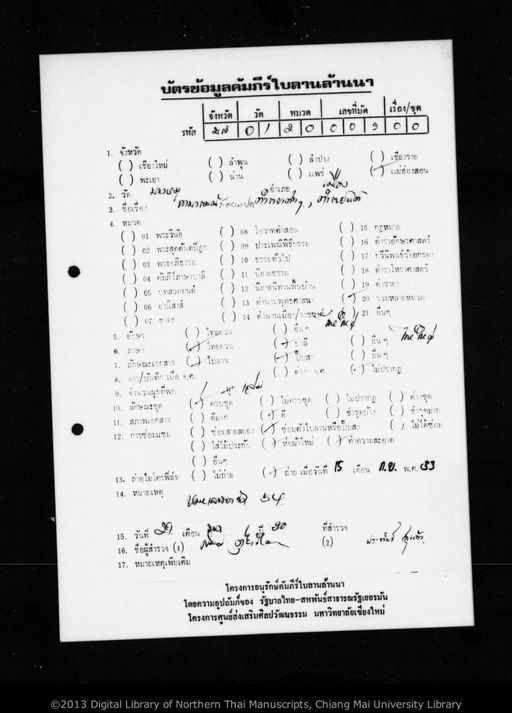 บัตรข้อมูลคัมภีร์ใบลานล้านนา
จังหวัด วัด หมวด เลขที่มัด เรื่อง/ชุด
รหัส มส 0 1 2 0 0 0 3 0 0
1. จังหวัด
( ) เชียงใหม่ ( ) ลำพูน ( ) ลำปาง ( ) เชียงราย
( ) พะเยา ( ) น่าน ( ) แพร่ (/) แม่ฮ่องสอน
2. วัด อำเภอ เมือง
3. ชื่อเรื่อง
4. หมวด
( ) 01 พระวินัย ( ) 08 โอวาทคำสอน ( ) 15 กฎหมาย
( ) 02 พระสุตตันตปิฎก ( ) 09 ประเพณีพิธีกรรม ( ) 16 ตำราอักษรศาสตร์
( ) 03 พระอภิธรรม ( ) 10 ธรรมทั่วไป ( ) 17 กวีนิพนธ์ร้อยกรอง
( ) 04 คัมภีร์ภาษาบาลี ( ) 11 นิยายธรรม ( ) 18 ตำราโหราศาสตร์
( ) 05 บทสวดมนต์ ( ) 12 นิยายนิทานพื้นบ้าน ( ) 19 ตำรายา
( ) 06 อานิสงส์ ( ) 13 ตำนานพุทธศาสนา (/) 20 รวมหลายหมวด
( ) 07 ชาดก ( ) 14 ตำนานเมือง/ราชวงศ์ ( ) 21 อื่นๆ
5. อักษร ( ) ไทยยวน ( ) อื่นๆ ไทใหญ่
6. ภาษา (/) ไทยยวน (/) บาลี ( ) อื่นๆ ไทใหญ่
7. ลักษณะเอกสาร (/) ใบลาน (/) พับสา ( ) อื่นๆ
8. จาร/บันทึก เมื่อ จ.ศ. ( ) ค่าง จ.ศ. (/) ไม่ปรากฏ
9. จำนวนผูกที่พบ ผูก
10. ลักษณะชุด (/) ครบชุด ( ) ไม่ครบชุด ( ) ไม่ปรากฏ ( ) ค่างชุด
11. สภาพเอกสาร ( ) ดีมาก (/) ดี ( ) ชำรุดบ้าง ( ) ชำรุดมาก
12. การซ่อมแซม ( ) ซ่อมสายสยอง (/) ซ่อมตัวใบลานหรือพับสา ( ) ไม่ได้ซ่อม
( ) ใส่ไม้ประกับ (/) ห่อผ้าใหม่ (/) ทำความสะอาด
( ) อื่นๆ
13. ถ่ายไมโครฟิล์ม ( ) ไม่ถ่าย (/) ถ่าย เมื่อวันที่ 15 เดือน ก.ย. พ.ศ. 33
14. หมายเหตุ 54
15. วันที่ 29 เดือน ปี 30 ที่สำรวจ
16. ชื่อผู้สำรวจ (1) (2) ประพันธ์
17. หมายเหตุเพิ่มเติม
โครงการอนุรักษ์คัมภีร์ใบลานล้านนา
โดยความอุปถัมภ์ของ รัฐบาลไทย-สหพันธ์สาธารณรัฐเยอรมัน
โครงการศูนย์ส่งเสริมศิลปวัฒนธรรม มหาวิทยาลัยเชียงใหม่
©2013 Digital Library of Northern Thai Manuscripts, Chiang Mai University Library